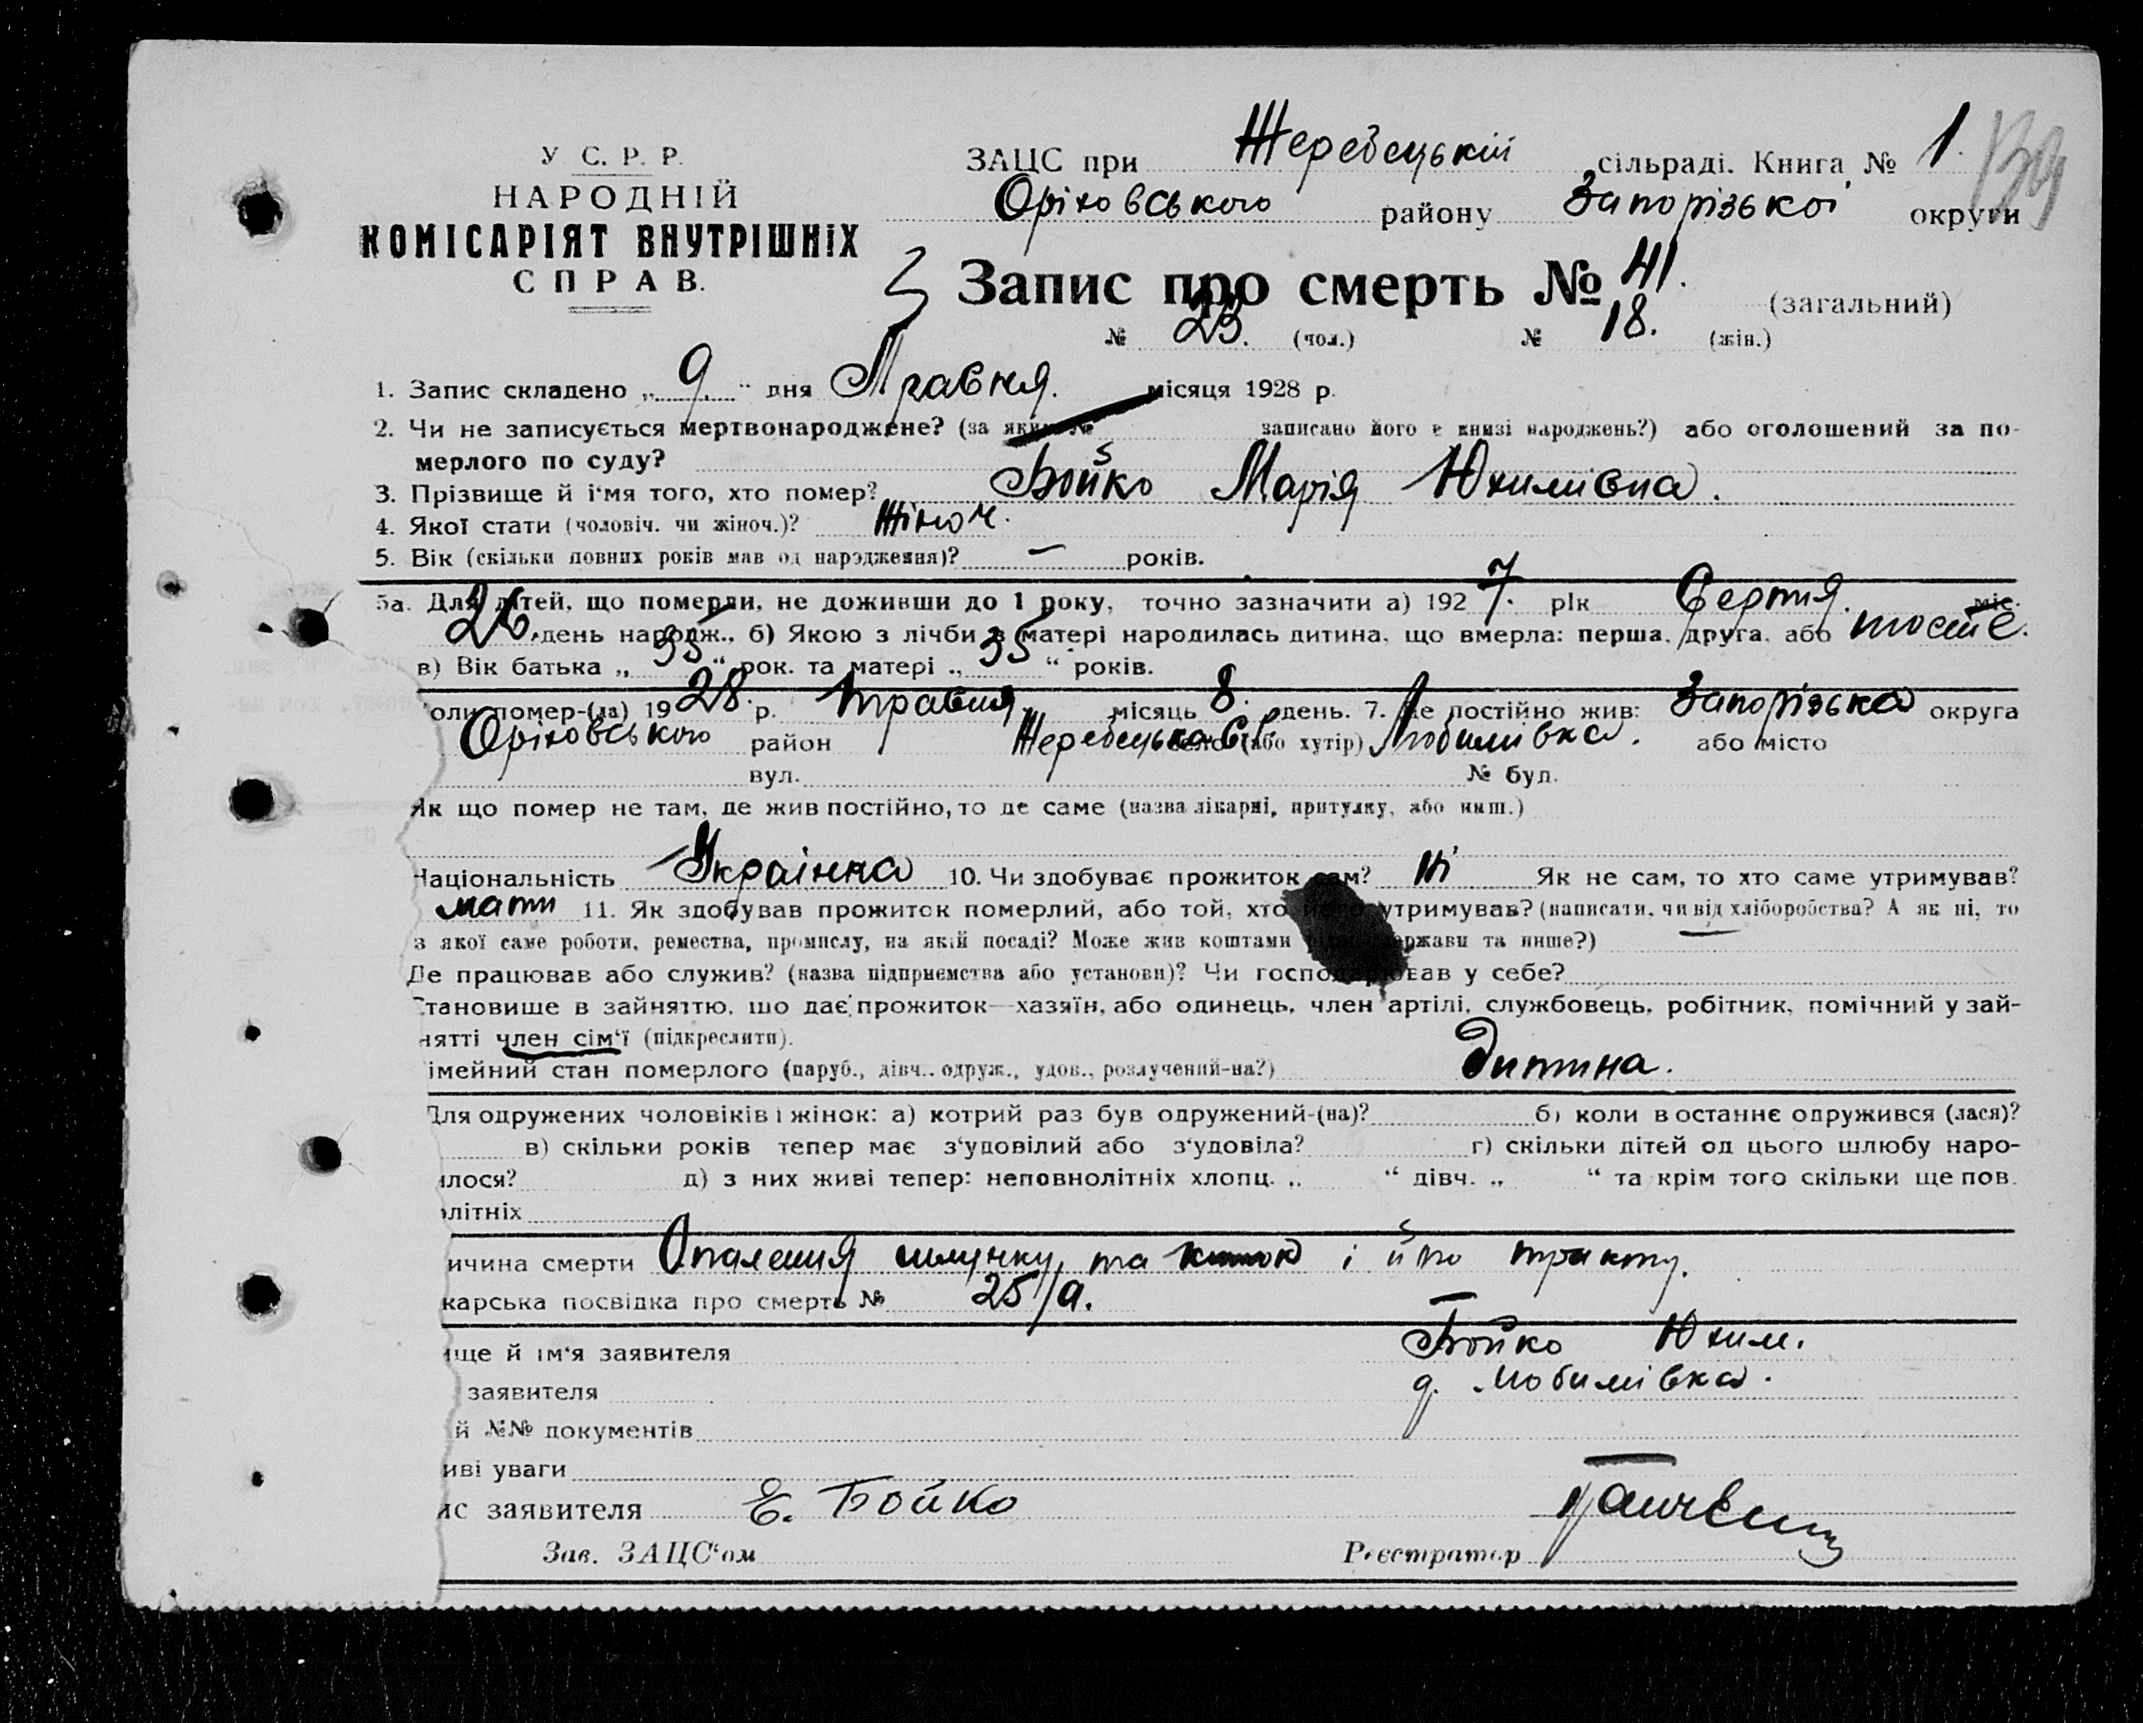 У. С. Р. Р.
НАРОДНІЙ
КОМІСАРІЯТ ВНУТРІШНІХ
СПРАВ.
ЗАЦС при Жеребецькій сільраді. Книга № 1.
Оріховського району Запорізької округи
Запис про смерть № 41. (загальний)
№ 23. (чол.) № 18. (жін.)
1. Запис складено „ 9 “ дня Травня. місяця 1928 р.
2. Чи не записується мертвонароджене? (за яким № записано його в книзі народжень?) або оголошений за по-
мерлого по суду?
3. Прізвище й і'мя того, хто помер? Бойко Марія Юхимівна.
4. Якої стати (чоловіч. чи жіноч.)? Жіноч.
5. Вік (скільки повних років мав од народження)? — років.
5а. Для дітей, що померли, не доживши до 1 року, точно зазначити а) 1927. рік Серпня. міс.
26. день народж., б) Якою з лічби в матері народилась дитина, що вмерла: перша, друга, або шосте.
в) Вік батька „ 35 “ рок. та матері „ 35 “ років.
оли помер-(ла) 1928. р. травня місяць 8. день. 7. Де постійно жив: Запорізька округа
Оріховського район Жеребецька с/р. село (або хутір) Любимівка. або місто
вул. № буд.
Як що помер не там, де жив постійно, то де саме (назва лікарні, притулку, або инш.)
Національність Українка 10. Чи здобуває прожиток сам? ні Як не сам, то хто саме утримував?
мати 11. Як здобував прожиток померлий, або той, хто його утримував? (написати, чи від хліборобства? А як ні, то
з якої саме роботи, ремества, промислу, на якій посаді? Може жив коштами державн та инше?)
Де працював або служив? (назва підприємства або установи)? Чи господарював у себе?
Становище в зайняттю, що дає прожиток—хазяїн, або одинець, член артілі, службовець, робітник, помічний у зай-
нятті член сім'ї (підкреслити).
імейний стан померлого (паруб., дівч., одруж., удов., розлучений-на?) Дитина.
Для одружених чоловіків і жінок: а) котрий раз був одружений-(на)? б) коли востаннє одружився (лася)?
в) скільки років тепер має з'удовілий або з'удовіла? г) скільки дітей од цього шлюбу наро-
илося? д) з них живі тепер: неповнолітніх хлопц. „ “ дівч. „ “ та крім того скільки ще пов.
олітніх
ичина смерти Опалення шлунку, та кишок і тракту.
карська посвідка про смерть № 25/а.
ище й ім'я заявителя Бойко Юхим.
заявителя д. Любимівка.
й №№ документів
иві уваги
ис заявителя Е. Бойко
Зав. ЗАЦС'ом Реєстратор